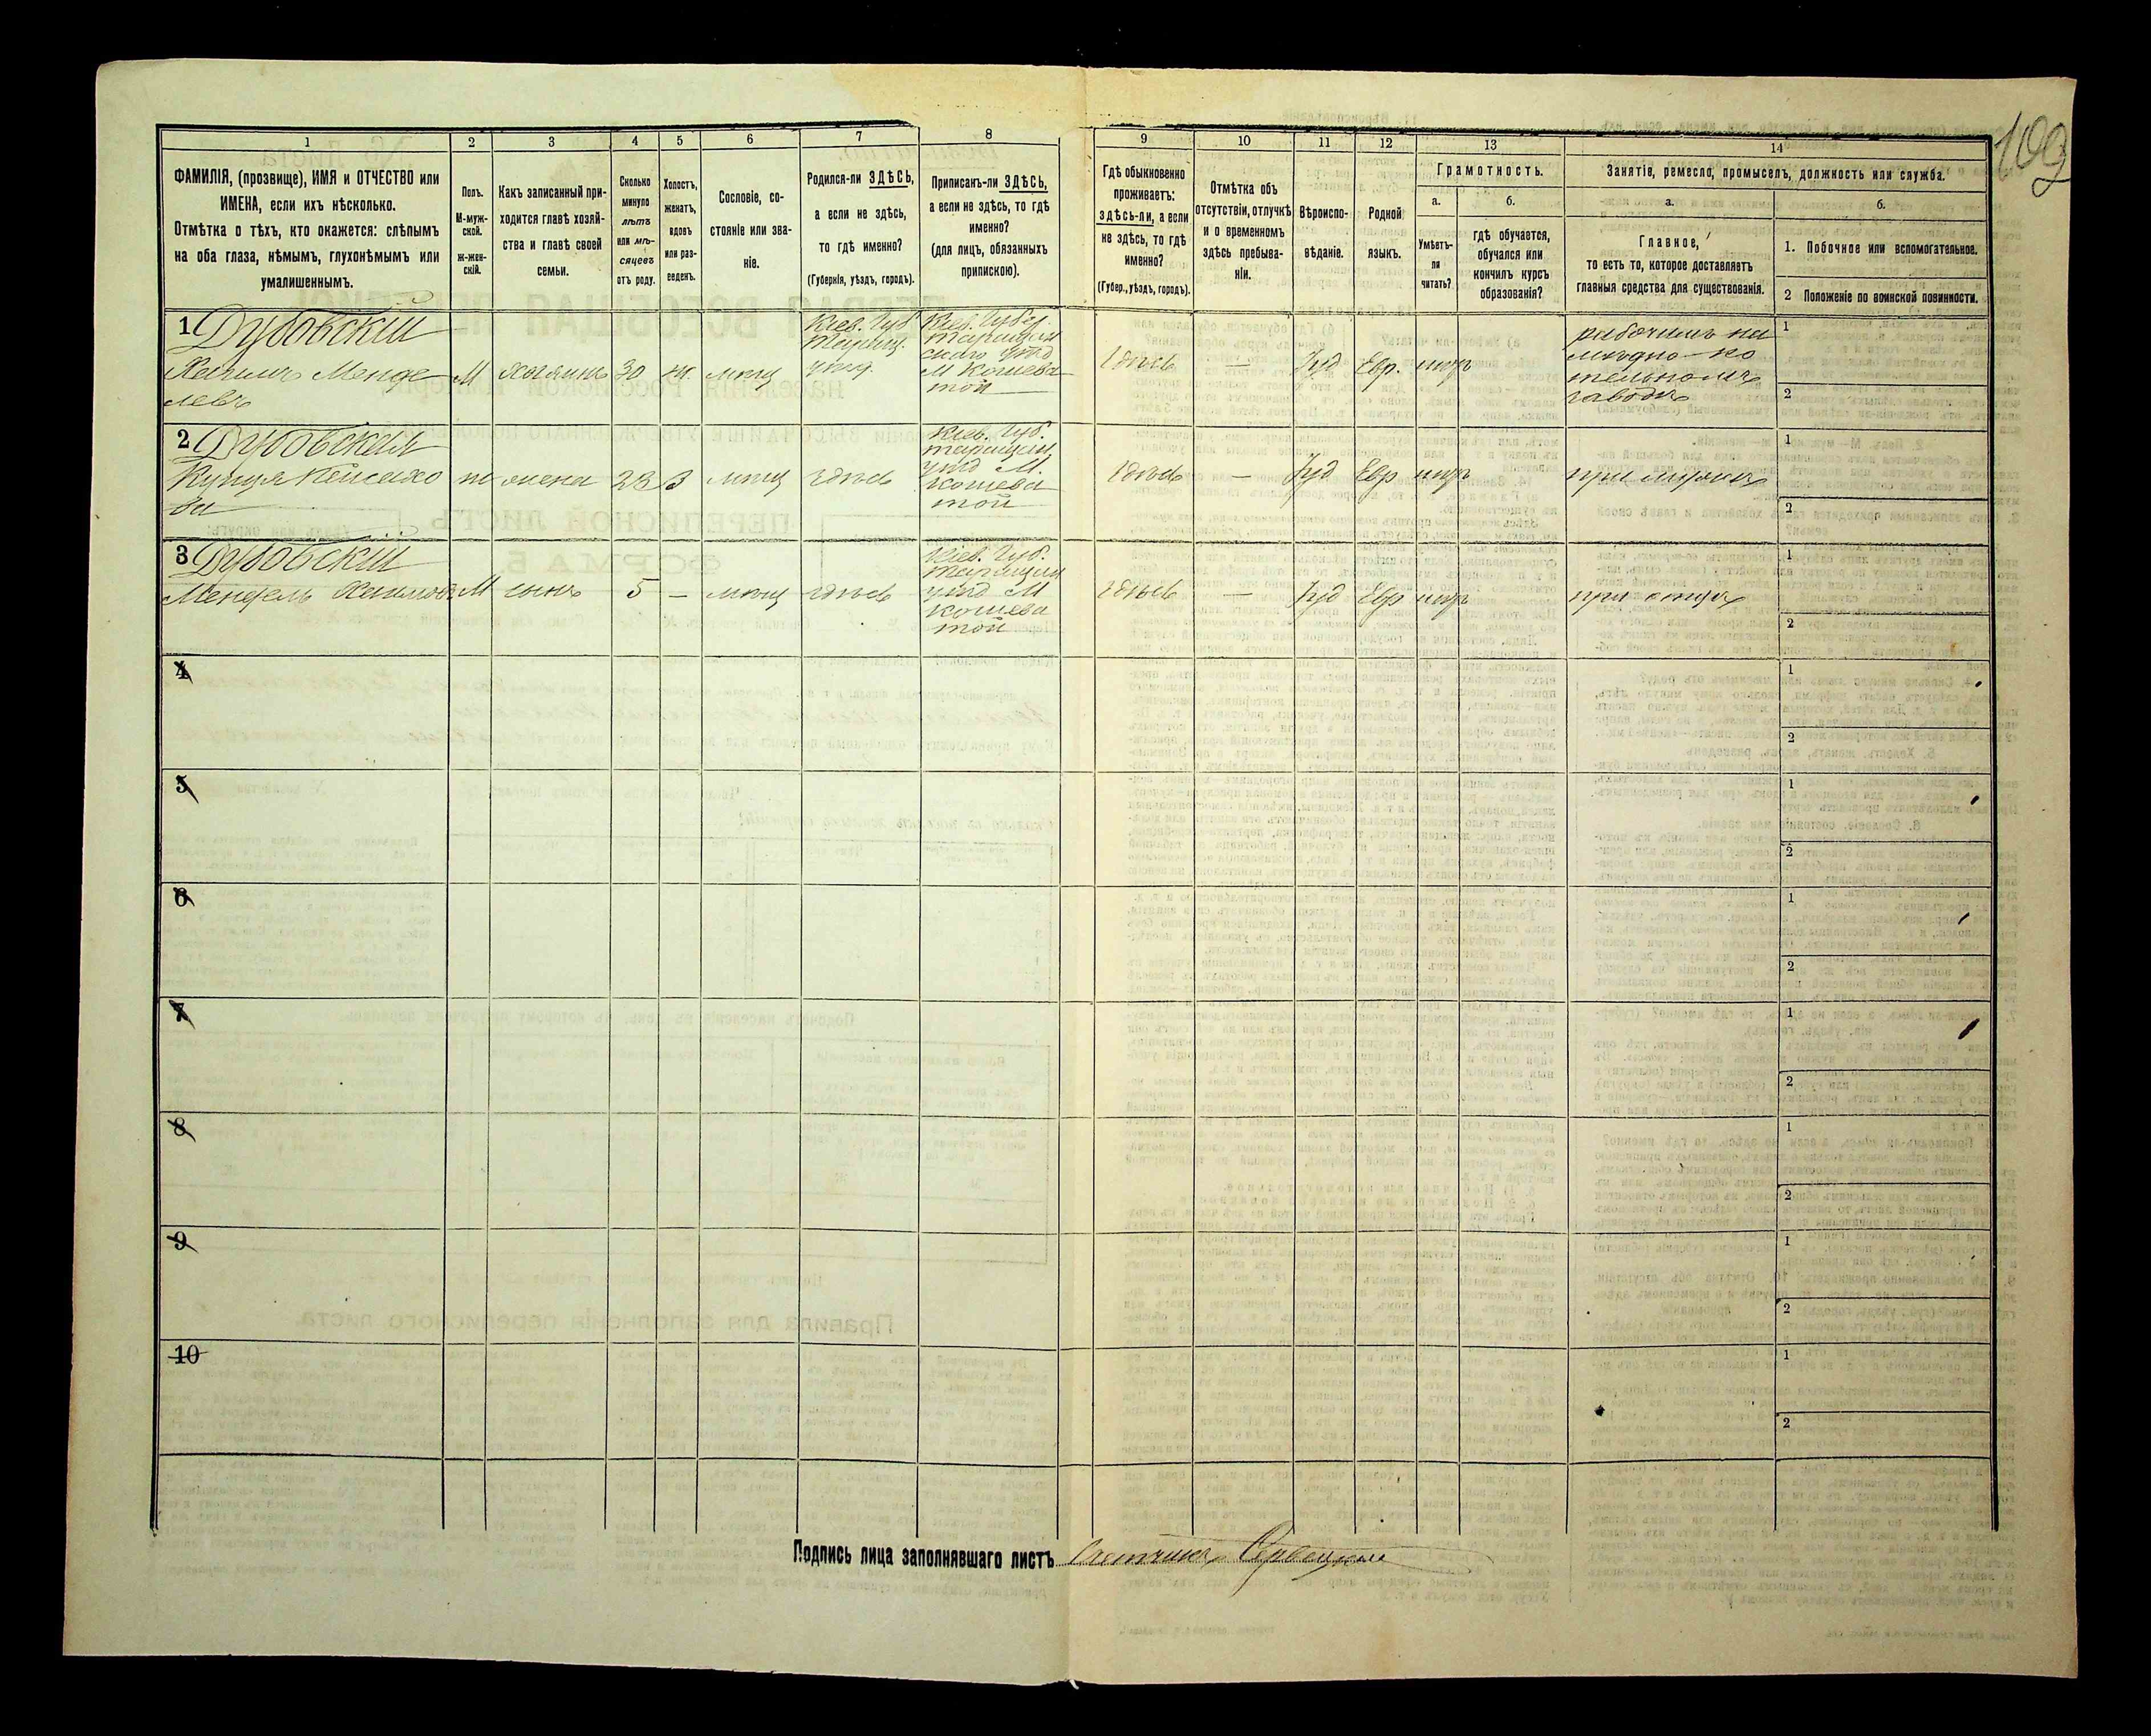 109
1
2
3
4
5
6
7
8
9
10
11
12
13
14
ФАМИЛІЯ, (прозвище), ИМЯ и ОТЧЕСТВО или
ИМЕНА, если ихъ нѣсколько.
Отмѣтка о тѣхъ, кто окажется: слѣпымъ
на оба глаза, нѣмымъ, глухонѣмымъ или
умалишеннымъ.
Полъ.
М-муж-
ской.
ж-жен-
скій.
Какъ записанный при-
ходится главѣ хозяй-
ства и главѣ своей
семьи.
Сколько
минуло
лѣтъ
или мѣ-
сяцевъ
отъ роду.
Холостъ,
женатъ,
вдовъ
или раз-
веденъ.
Сословіе, со-
стояніе или зва-
ніе.
Родился-ли ЗДѢСЬ,
а если не здѣсь,
то гдѣ именно?
(Губернія, уѣздъ, городъ).
Приписанъ-ли ЗДѢСЬ,
а если не здѣсь, то гдѣ
именно?
(для лицъ, обязанныхъ
припискою).
Гдѣ обыкновенно
проживаетъ:
здѣсь-ли, а если
не здѣсь, то гдѣ
именно?
(Губер., уѣздъ, городъ).
Отмѣтка объ
отсутствіи, отлучкѣ
и о временномъ
здѣсь пребыва-
ніи.
Вѣроиспо-
вѣданіе.
Родной
языкъ.
Грамотность.
а.
Умѣетъ-
ли
читать?
б.
гдѣ обучается,
обучался или
кончилъ курсъ
образованія?
Занятіе, ремесло, промыселъ, должность или служба.
а.
Главное,
то есть то, которое доставляетъ
главныя средства для существованія.
б.
1. Побочное или вспомогательное.
2 Положеніе по воинской повинности.
1 Дубовскій
Хаимъ Менде
левъ
М
хозяинъ
30
ж.
мѣщ
Кіев. Губ
Таращ.
уѣзд.
Кіев. Губер.
Таращан
скаго уѣзд
М Кошева
той
здѣсь
—
Іуд
Евр.
рабочимъ на
мѣдно-ко
тельномъ
заводѣ
1
2
2 Дубовская
ж
жена
23
З
мѣщ
здѣсь
Кіев. Губ.
Таращан
уѣзд М.
Кошева
той
здѣсь
—
Іуд
Евр
при мужѣ
1
2
3 Дубовскій
Мендель Хаимовъ
М
сынъ
5
—
мѣщ
здѣсь
Кіев. Губ.
Таращан
уѣзд М
Кошева
той
здѣсь
—
Іуд
Евр
при отцѣ
1
2
4
1
2
5
1
2
6
1
2
7
1
2
8
1
2
9
1
2
10
1
2
Подпись лица заполнявшаго листъ Счетчикъ